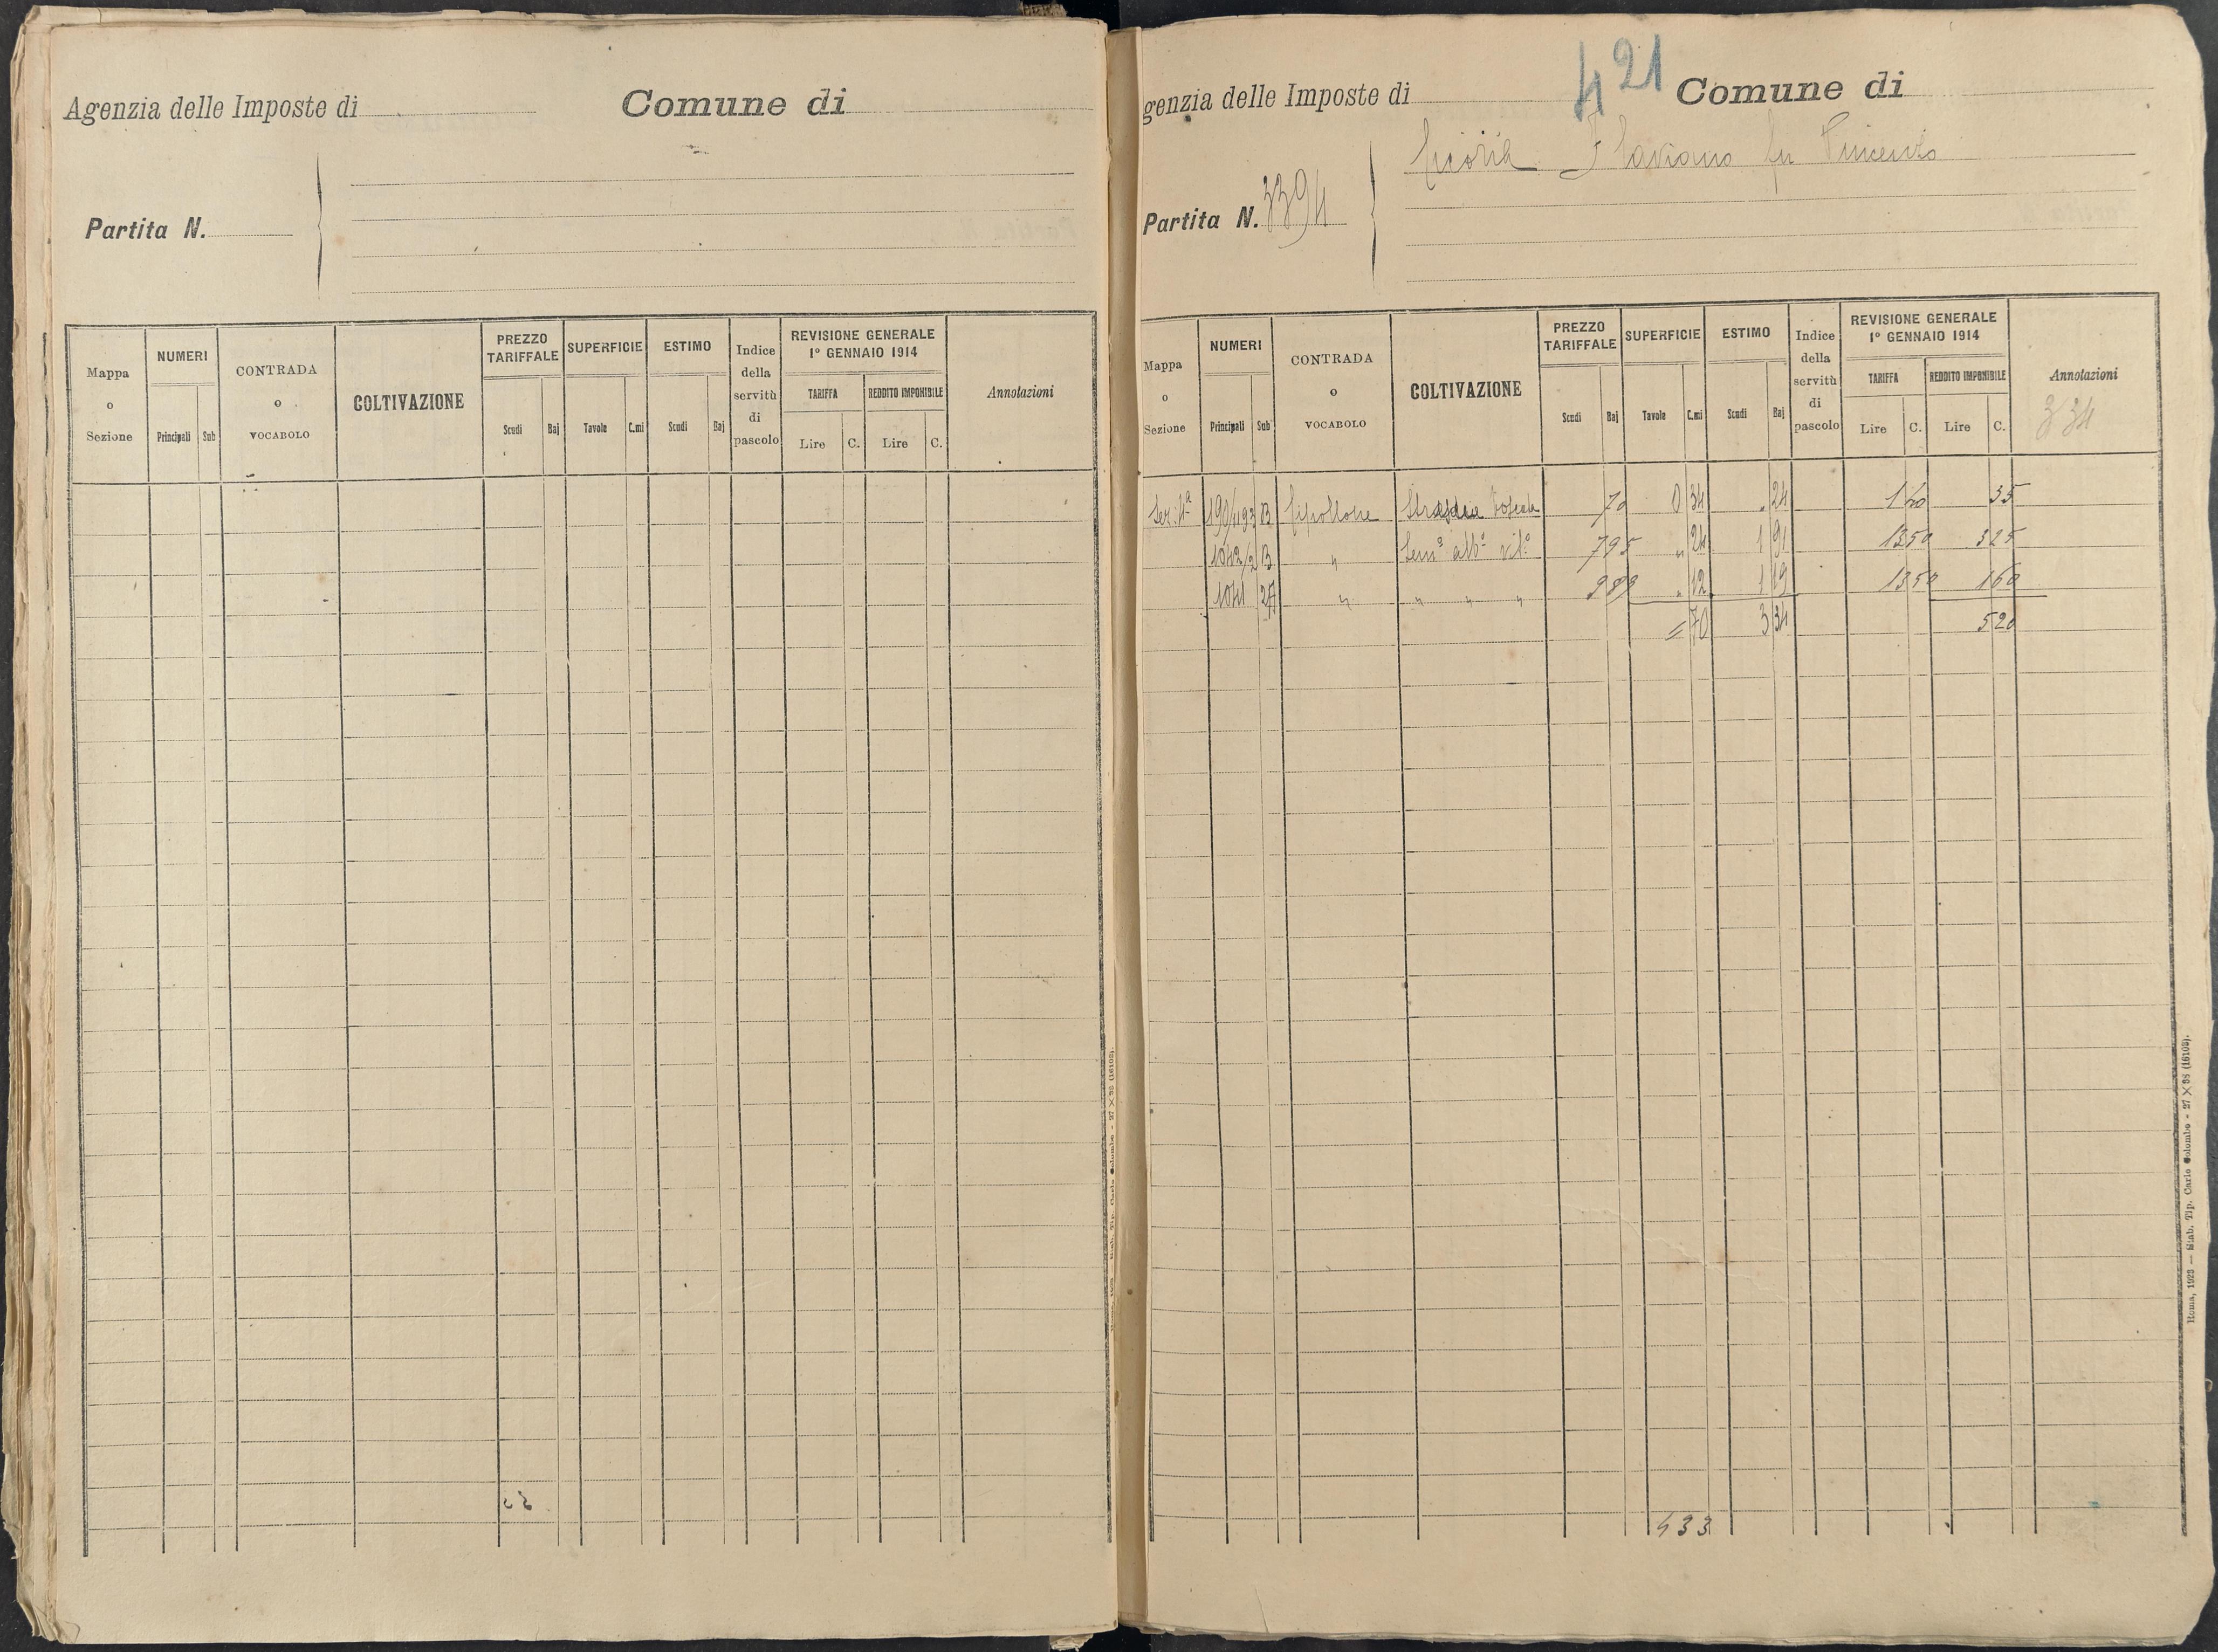 Agenzia delle Imposte di
Comune di
Partita N.
Mappa o Sezione
NUMERI
Principali
Sub
CONTRADA o VOCABOLO
COLTIVAZIONE
PREZZO TARIFFALE
Scudi
Baj
SUPERFICIE
Tavole
C.mi
ESTIMO
Scudi
Baj
Indice della servitù di pascolo
REVISIONE GENERALE
1° GENNAIO 1914
TARIFFA
REDDITO IMPONIBILE
Lire
C.
Lire
C.
Annotazioni
421
genzia delle Imposte di
Comune di
Flaviano fu Vincenzo
Partita N. 3394
Mappa o Sezione
NUMERI
Principali
Sub
CONTRADA o VOCABOLO
COLTIVAZIONE
PREZZO TARIFFALE
Scudi
Baj
SUPERFICIE
Tavole
C.mi
ESTIMO
Scudi
Baj
Indice della servitù di pascolo
REVISIONE GENERALE
1° GENNAIO 1914
TARIFFA
REDDITO IMPONIBILE
Lire
C.
Lire
C.
Annotazioni
334
Sez. 4ª B 70 0 34 24 35
B " 795 " 24 1 91 1350 325
" " " " 989 " 12 1 19 1350 160
= 70 3 34 520
433
Roma, 1923 — Stab. Tip. Carlo Colombo - 27 X 38 (16103).